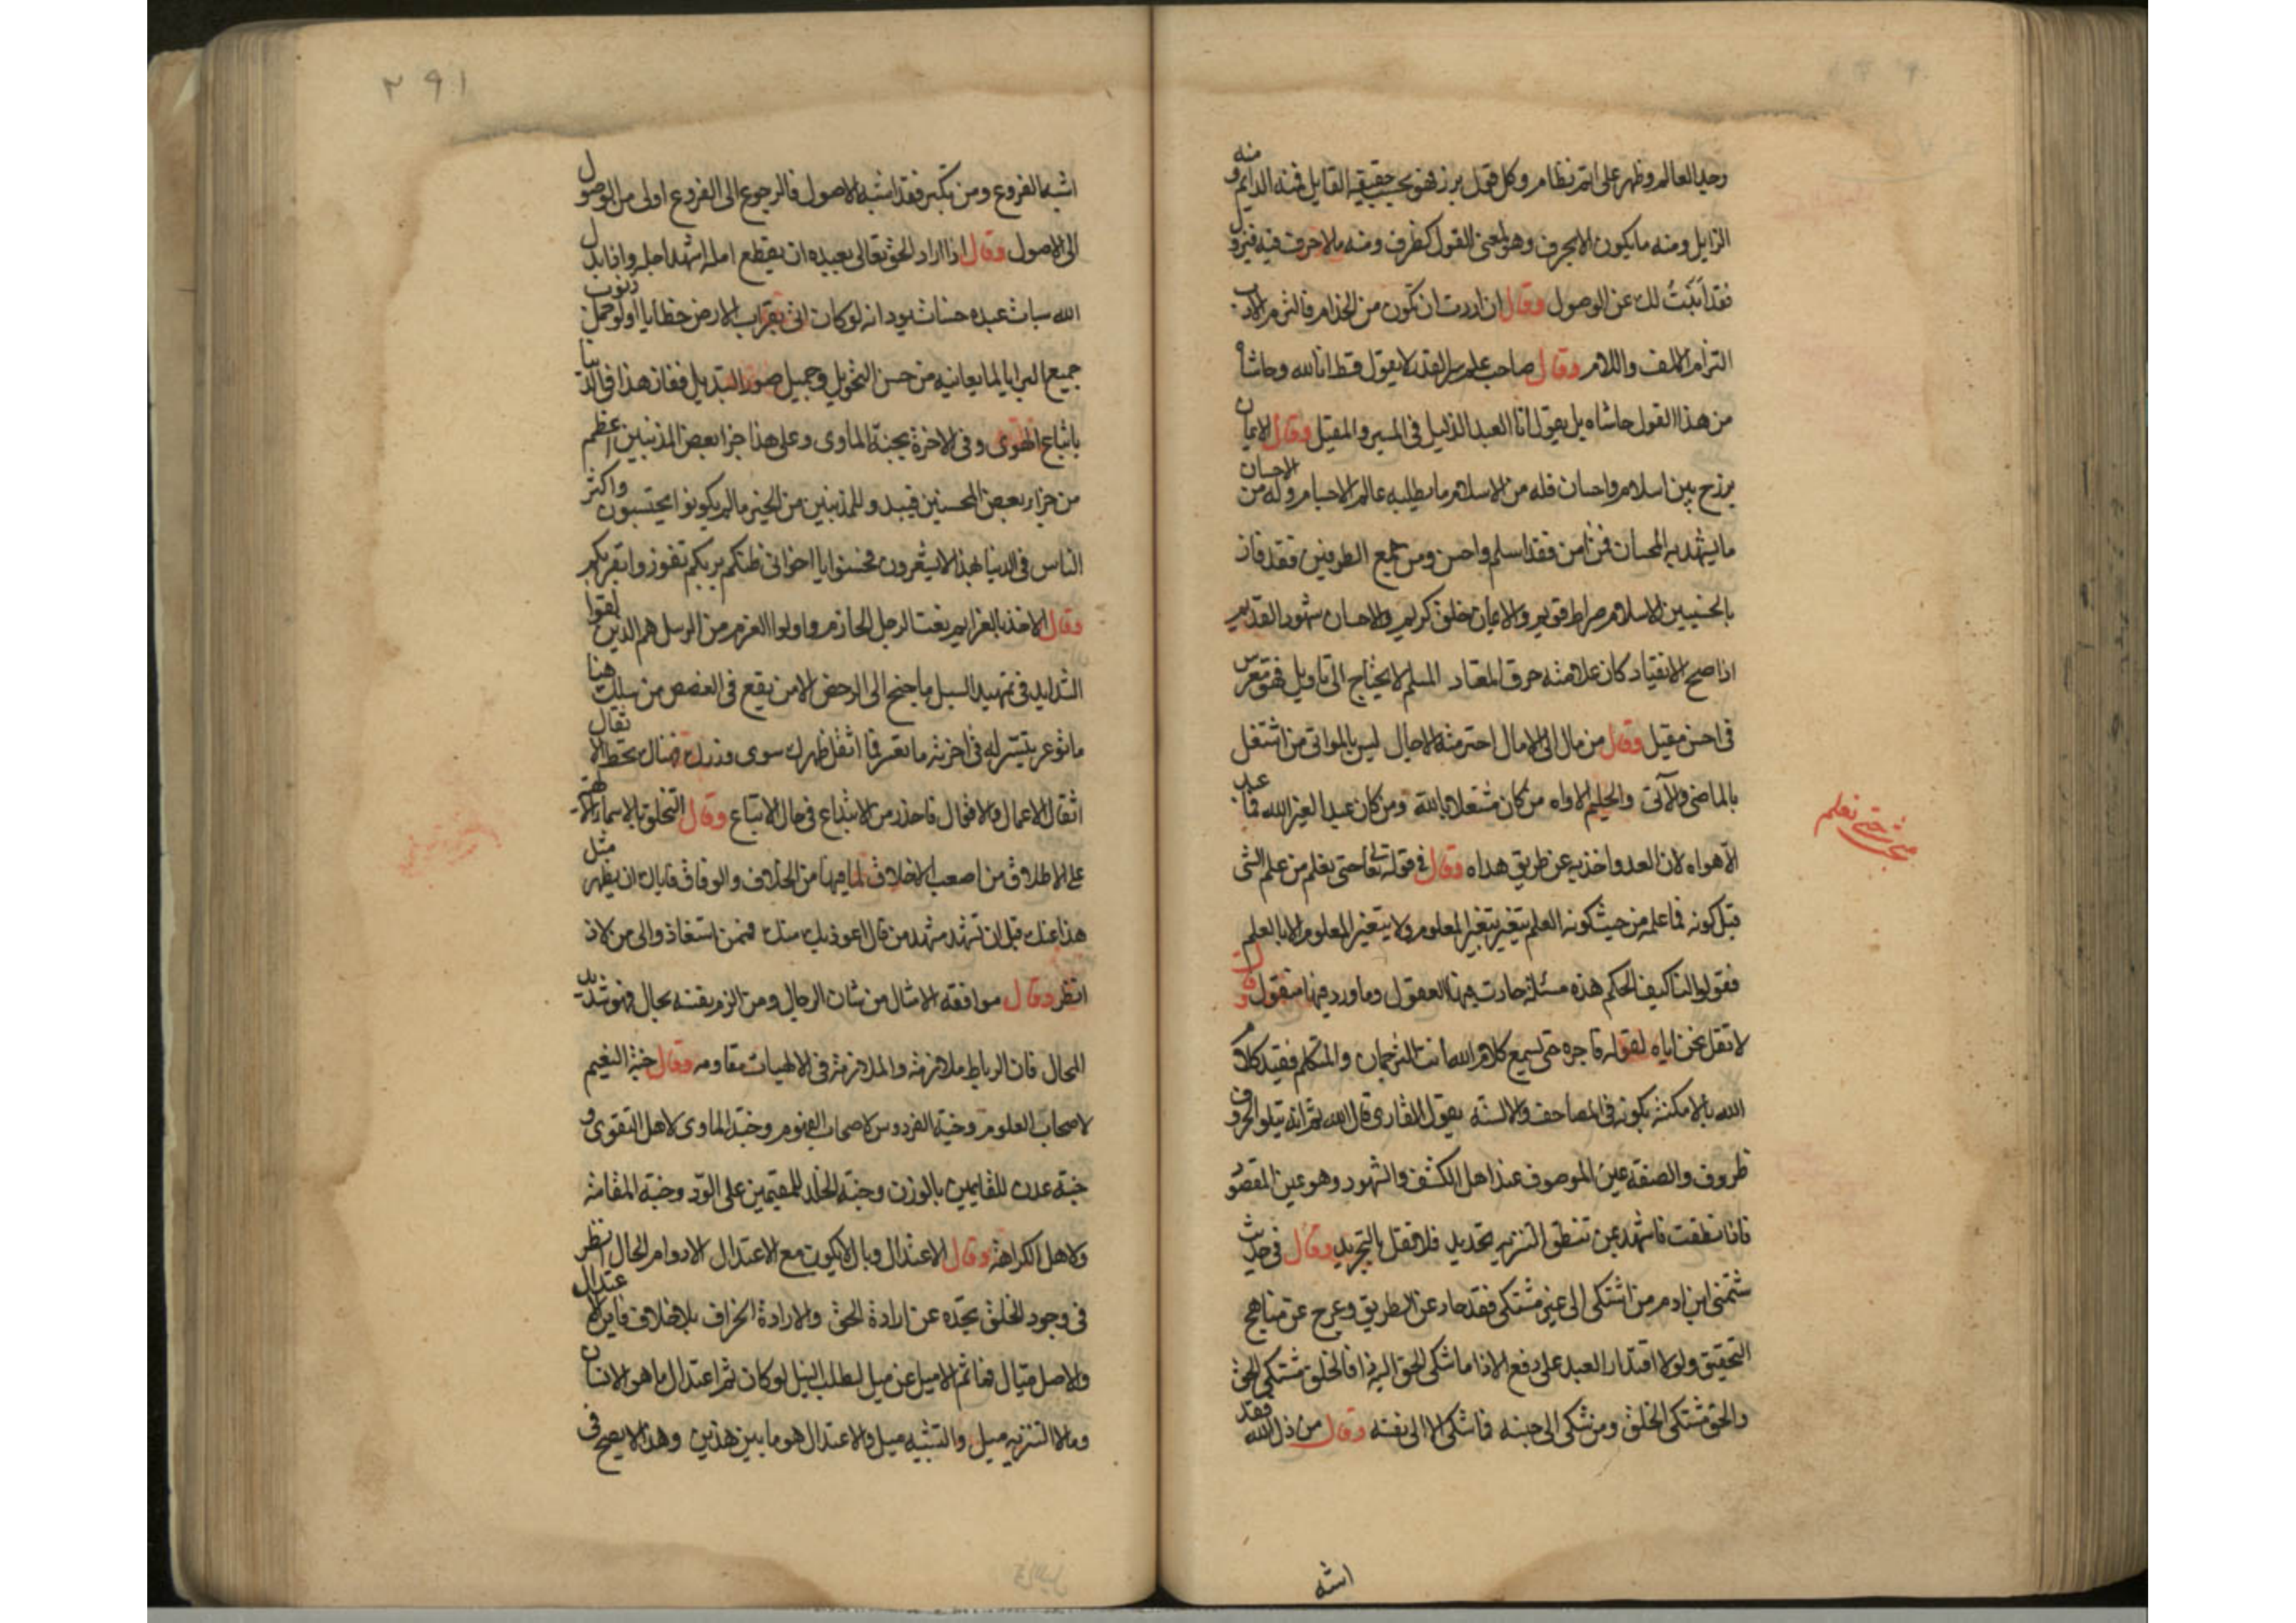 وجد العالم وظهر على اتم نظام وكل قول برز فهو بحسب حقيقة القايل فمنه الدايم ومنه
الزايل ومنه ما يكون الا بحرف وهو لمعنى القول كظرف ومنه ما لا حرف فيه فيزول
فقد ابنت لك عن الوصول وقال ان اردت ان تكون من الخدام فالتزم الادب
التزام الالف واللام وقال صاحب علم سر القدر لا يقول قط انا الله وحاشاه
من هذا القول حاشاه بل يقول انا العبد الذليل في المسير والمقيل وقال الايمان
برزخ بين اسلام واحسان فله من الاسلام ما يطلبه عالم الاجسام وله من الاحسان
ما يشهد به المحسان فمن امن فقد اسلم واحسن ومن جمع الطرفين فقد فاز
بالحسنيين الاسلام صراط قويم والايمان خلق كريم والاحسان شهود القديم
اذا صح الانقياد كان علامته خرق المعتاد المسلم لا يحتاج الى تاويل فهو معرس
في احسن مقيل وقال من مال الى الامال اخترمته الاجال ليس بالمواتي من اشتغل
بالماضي والآتي والحليم الاواه من كان مشتغلا بالله ومن كان عبدا لغير الله فما عبد
الا هواه لان العدو اخذ به عن طريق هداه وقال في قوله تعالى حتى نعلم من علم الشي
قبل كونه فما علمه من حيث كونه العلم يتغير بتغير المعلوم ولا يتغير المعلوم الا بالعلم
فقولوا لنا كيف الحكم هذه مسئلة حارت فيها العقول وما ورد فيها منقول وقال
لا تقل نحن اياه لقوله فاجره حتى يسمع كلام الله انت الترجمان والمتكلم فقيد كلام
الله بالامكنة بكونه في المصاحف والالسنة يقول القارى قال الله ثم انه يتلو الحروف
ظروف والصفة عين الموصوف عند اهل الكشف والشهود وهو عين المقصود
فاذا نطقت فاشهد بمن تنطق التنزيه تحديد فلا تقل بالتجريد وقال في حديث
شتمني ابن ادم من اشتكى الى غير مشتكى فقد حاد عن الطريق وعرج عن مناهج
التحقيق ولولا اقتدار العبد على دفع الاذا ما شكى الحق اليه ذا فالخلق مشتكى الحق
والحق مشتكى الخلق ومن شكى الى جنسه فما شكى الا الى نفسه وقال من ذل لله فقد
اشبه
نعلم
٢٩١
اشبه الفروع ومن تكبر فقد اشبه الاصول فالرجوع الى الفروع اولى من الوصول
الى الاصول وقال اذا اراد الحق تعالى بعبيده ان يقطع امله اشهده اجله واذا بدل
الله سيات عبده حسنات يود انه لو كان اتى بقراب الارض خطايا او لو حمل ذنوب
جميع البرايا لما يعاينه من حسن التحويل وجميل صور التبديل ففاز هذا في الدنيا
باتباع الهوى وفي الاخرة بجنة الماوى وعلى هذا جزا بعض المذنبين اعظم
من جزا بعض المحسنين فيبد وللمذنبين من الخير ما لم يكونوا يحتسبون واكثر
الناس في الدنيا بهذا لا يشعرون فحسنوا يا اخواني ظنكم بربكم تفوزوا بقربكم
وقال الاخذ بالعزايم نعت الرجل الحازم واولوا العزم من الرسل هم الذين لقوا
الشدايد في تمهيد السبل ما جنح الى الرخص الا من يقع في الغصص من سلك هنا
ما توعر تيسر له في اخرته ما تعسر فما اثقل ظهرك سوى وزرك فهناك تحط الاثقال
اثقال الاعمال والاقوال فاحذر من الابتداع في حال الاتباع وقال التخلق بالاسماء الالهية
على الاطلاق من اصعب الاخلاق لما فيها من الخلاف والوفاق فاياك ان يظهر مثل
هذا عنك قبل ان تشهد مشهد من قال اعوذ بك منك فممن استعاذ والى من لاذ
انظر وقال موافقة الامثال من شان الرجال ومن الزم نفسه بحال فهو شديد
المحال فان الرباط ملازمة والملازمة في الالهيات مقاومه وقال جنة النعيم
لاصحاب العلوم وجنة الفردوس لاصحاب الفهوم وجنة الماوى لاهل التقوى و
جنة عدن للقايمين بالوزن وجنة الخلد للمقيمين على الود وجنة المقامة
لاهل الكرامة وقال الاعتدال وبال لا يكون مع الاعتدال الا دوام الحال انظر
في وجود الخلق تجده عن ارادة الحق والارادة انحراف بلا خلاف فاين الاعتدال
والاصل ميال فما ثم الا ميل عن ميل لطلب النيل لو كان ثم اعتدال ما هو الانسان
ومال التنزيه ميل والتشبيه ميل والاعتدال هو ما بين هذين وهذا لا يصح في